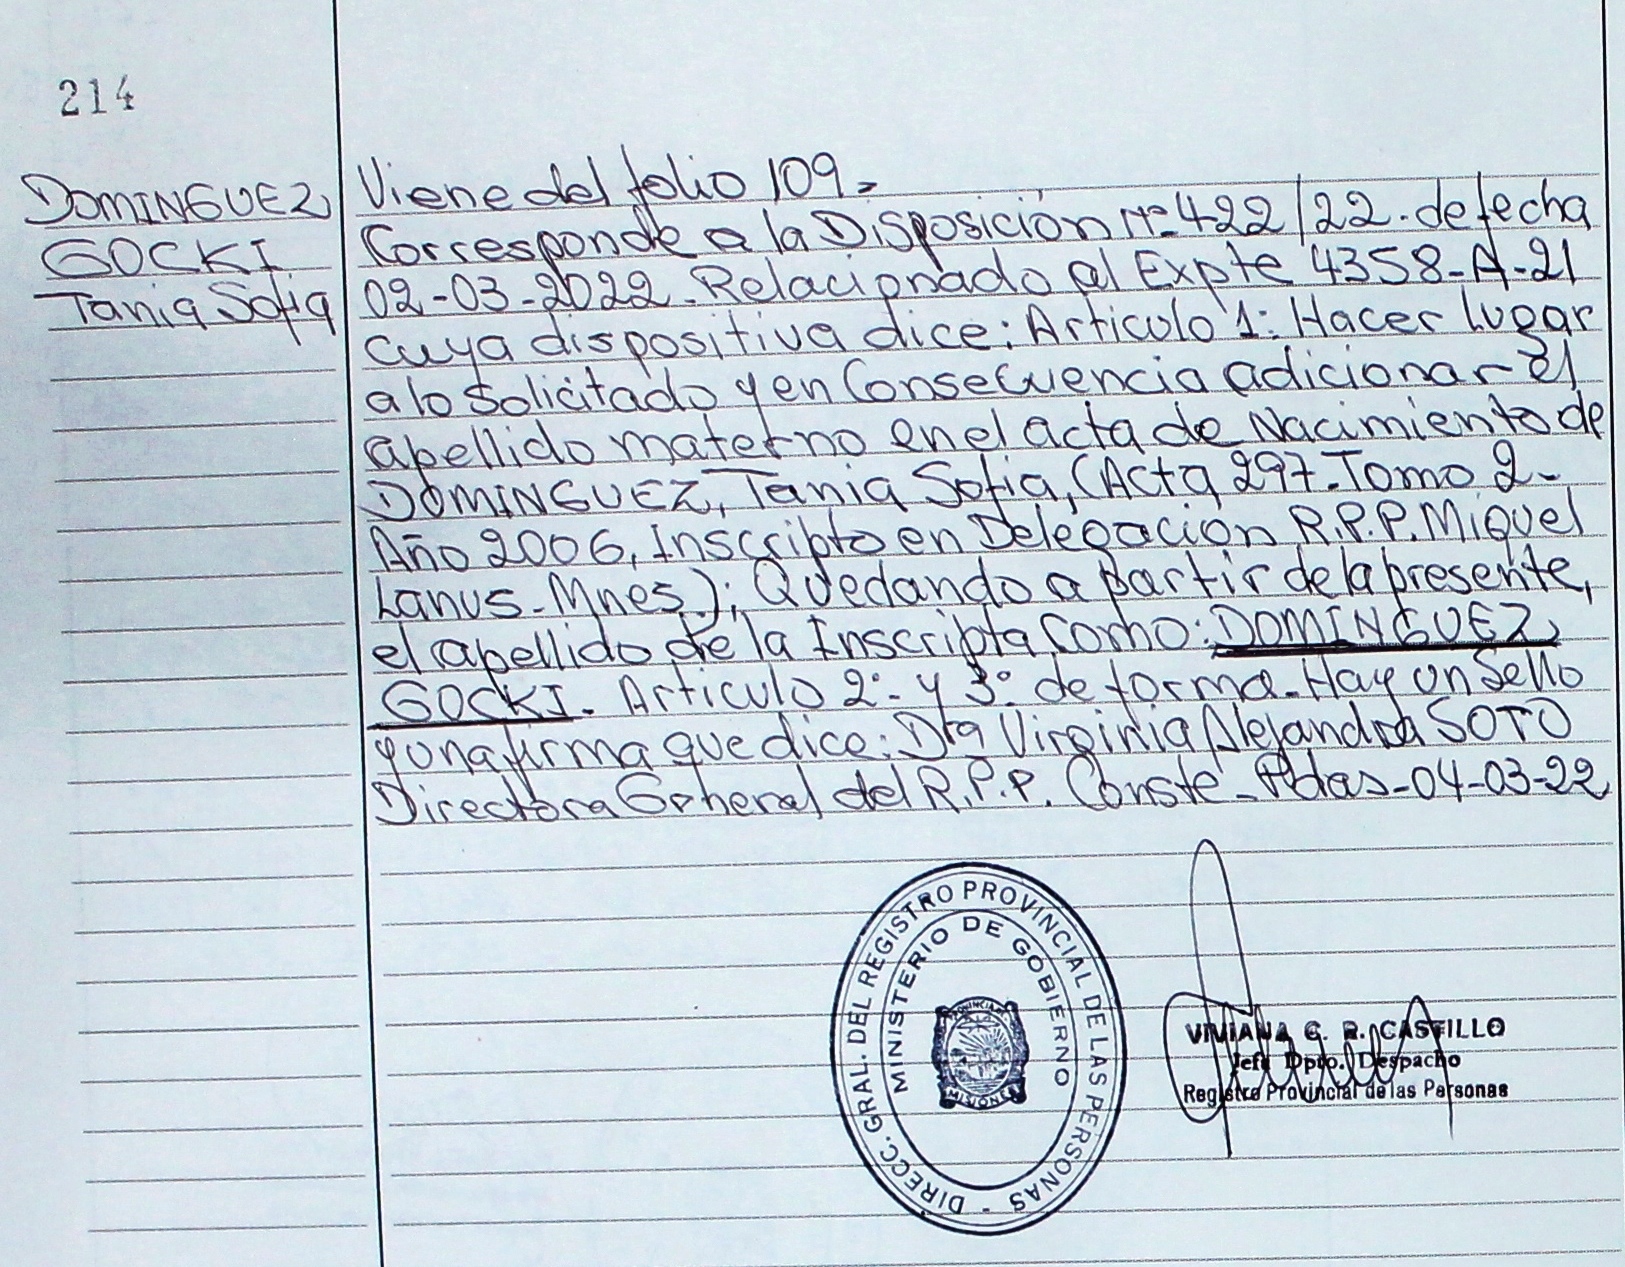 214
DOMINGUEZ
GOCKI
Tania Sofia
Viene del folio 109-
Corresponde a la Disposición Nº 422/22. de fecha
02-03-2022. Relacionado al Expte 4358-A-21
cuya dispositiva dice: Articulo 1: Hacer lugar
a lo solicitado y en Consecuencia adicionar el
apellido materno en el acta de Nacimiento de
DOMINGUEZ, Tania Sofia, (Acta 297-Tomo 2-
Año 2006, Inscripto en Delegación R.P.P. Miguel
Lanus-Mnes.); Quedando a partir de la presente,
el apellido de la Inscripta como: DOMINGUEZ
GOCKI. Articulo 2º- y 3º de forma-Hay un Sello
y una firma que dice: Dra Virginia Alejandra SOTO
Directora General del R.P.P. Conste-Pdas-04-03-22
DIRECC. GRAL. DEL REGISTRO PROVINCIAL DE LAS PERSONAS -
MINISTERIO DE GOBIERNO
PROVINCIA
MISIONES
VIVIANA G. R. CASTILLO
Jefe Dpto. Despacho
Registro Provincial de las Personas